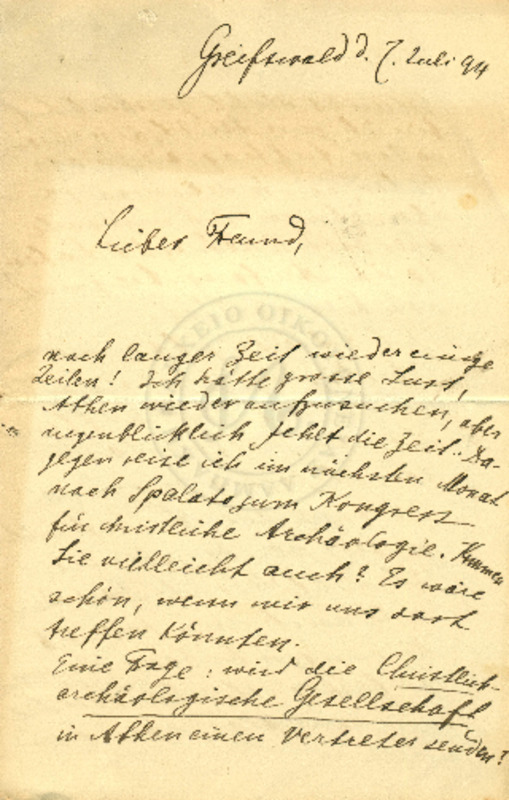 Greifswald d. 7. Juli 94
Lieber Freund,
nach langer Zeit wieder einige
Zeilen! Ich hätte grosse Lust,
Athen wieder aufzusuchen, aber
augenblicklich fehlt die Zeit. Da-
gegen reise ich im nächsten Monat
nach Spalato zum Kongress
für christliche Archäologie. Kommen
Sie vielleicht auch? Es wäre
schön, wenn wir uns dort
treffen könnten.
Eine Frage: wird die Christlich-
archäologische Gesellschaft
in Athen einen Vertreter senden?